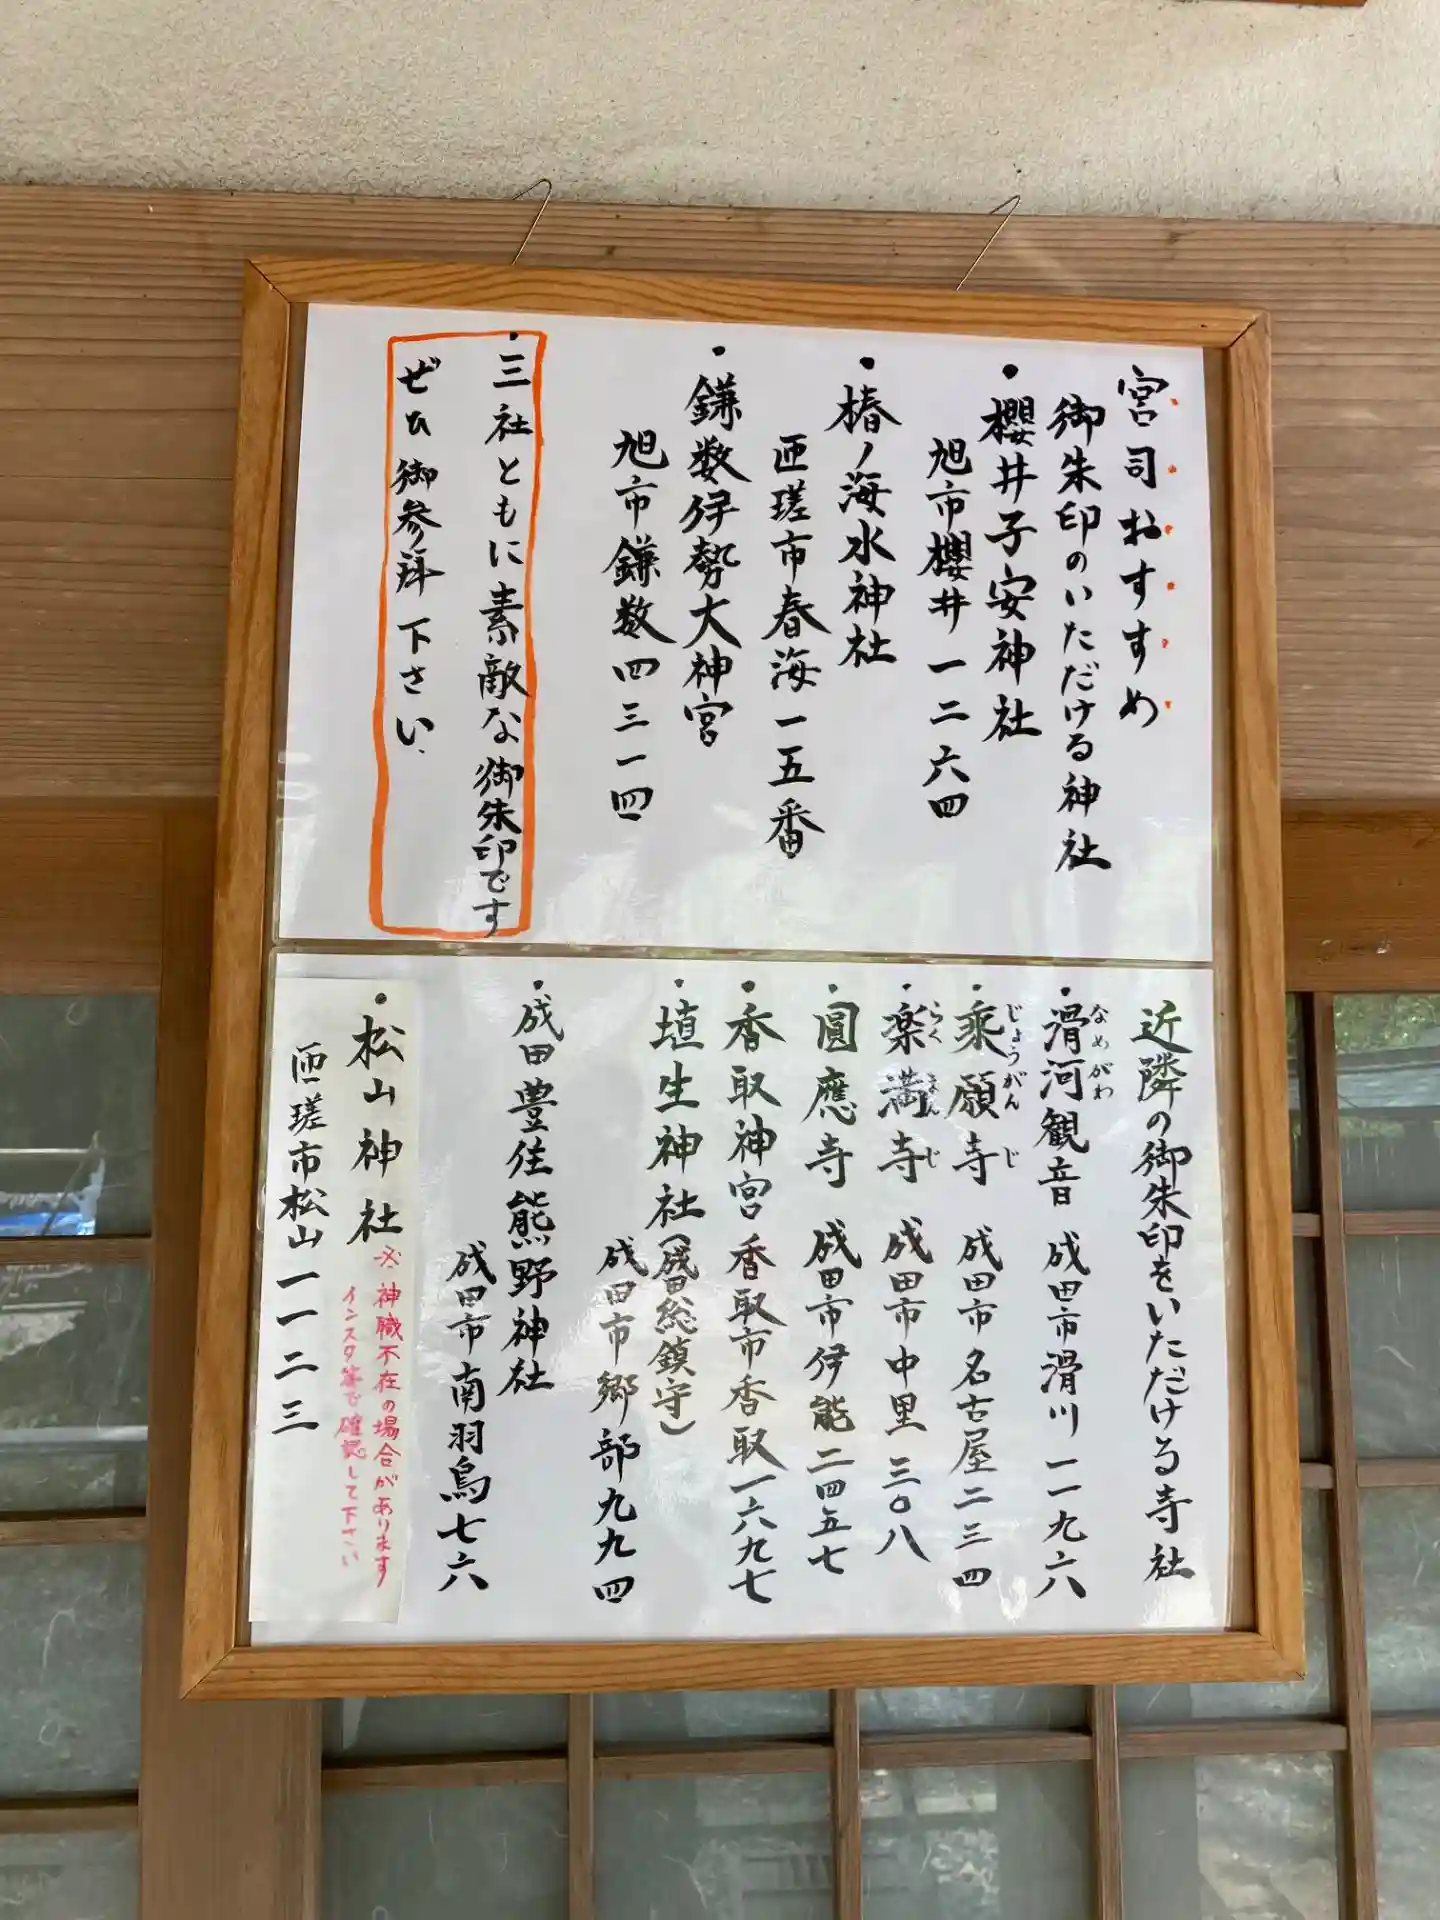 宮司おすすめ
御朱印のいただける神社
・櫻井子安神社
旭市櫻井一二六四
・椿ノ海水神社
匝瑳市春海一五番
・鎌数伊勢大神宮
旭市鎌数四三一四
・三社ともに素敵な御朱印です
ぜひ御参拝下さい、
近隣の御朱印をいただける寺社
・滑河観音 成田市滑川一一九六
なめがわ
・乘願寺 成田市名古屋二三四
じょうがんじ
・楽満寺 成田市中里三〇八
らくまんじ
・圓應寺 成田市伊能二四五七
・香取神宮 香取市香取一六九七
・埴生神社(成田総鎮守)
成田市郷部九九四
・成田豊住熊野神社
成田市南羽鳥七六
・松山神社
※神職不在の場合があります
インスタ等で確認して下さい
匝瑳市松山一一二三